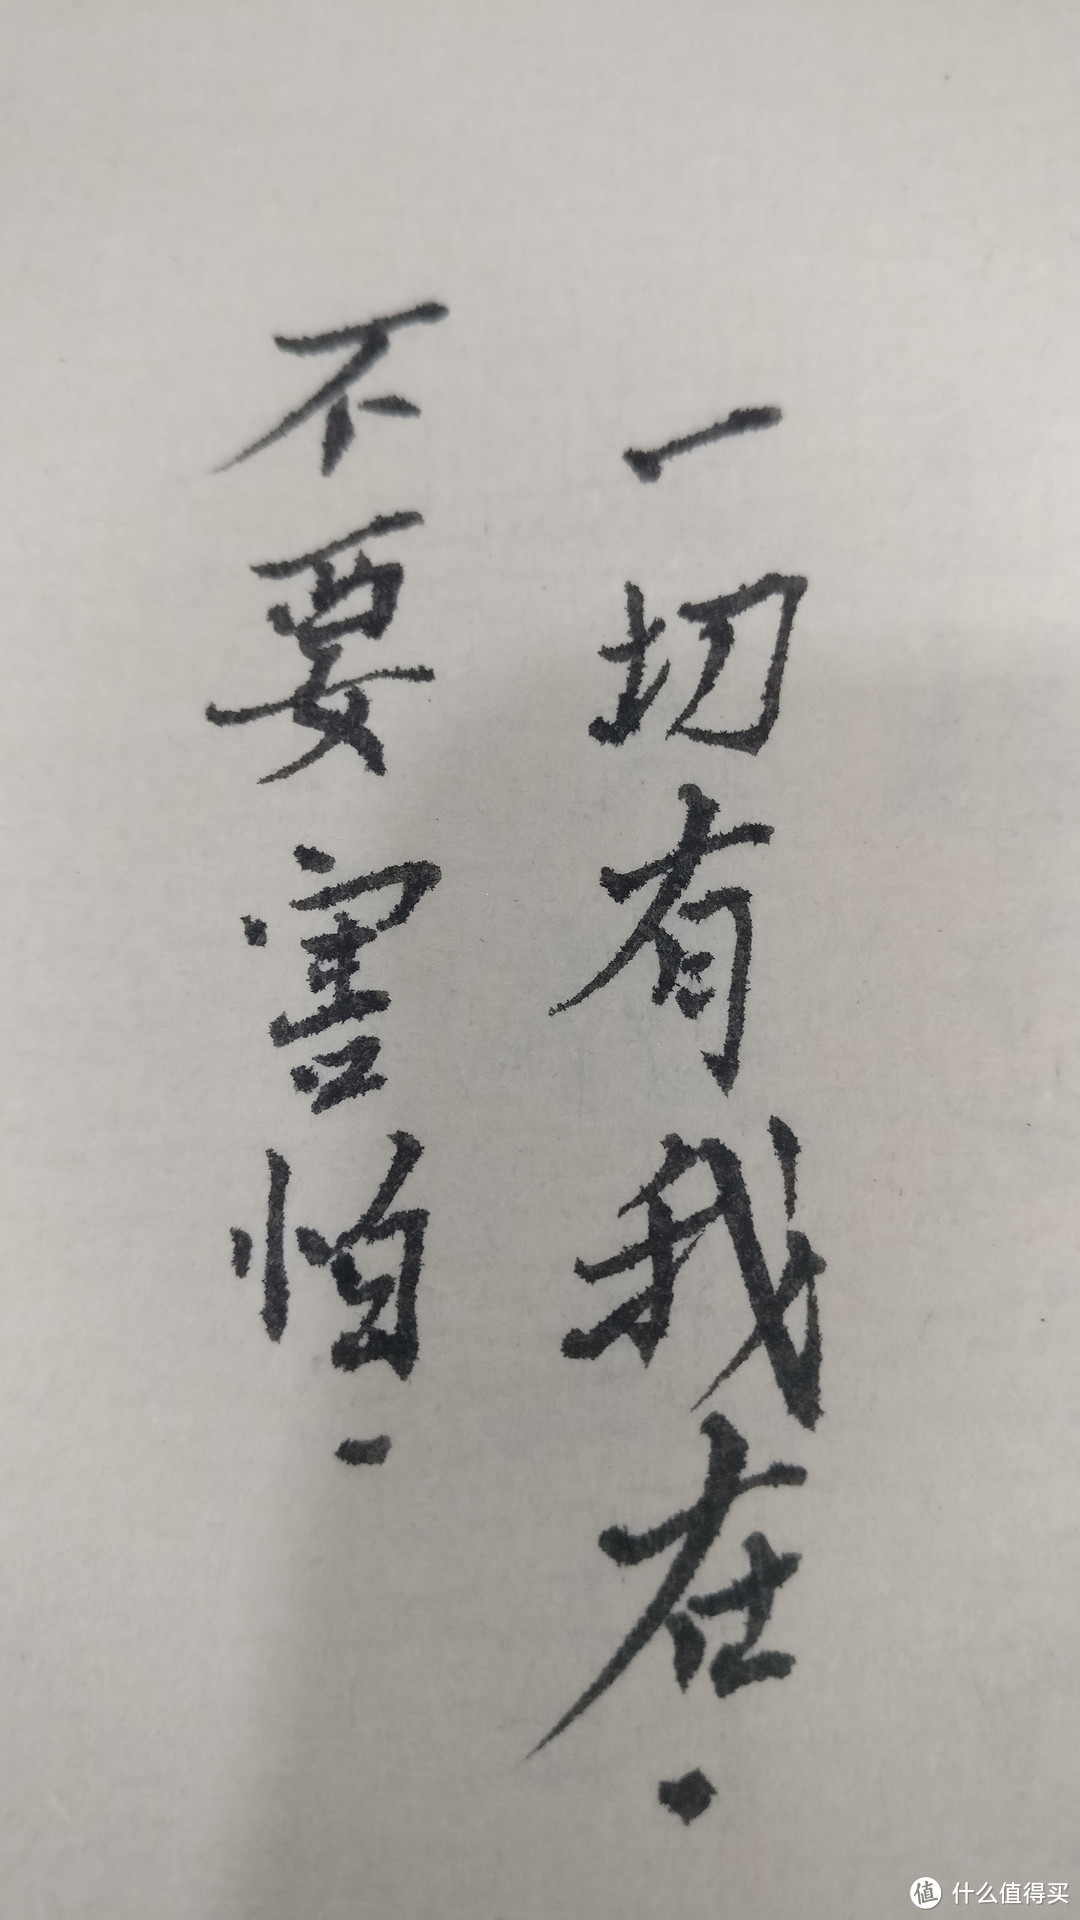 一切有我在.
不要害怕.
值 什么值得买